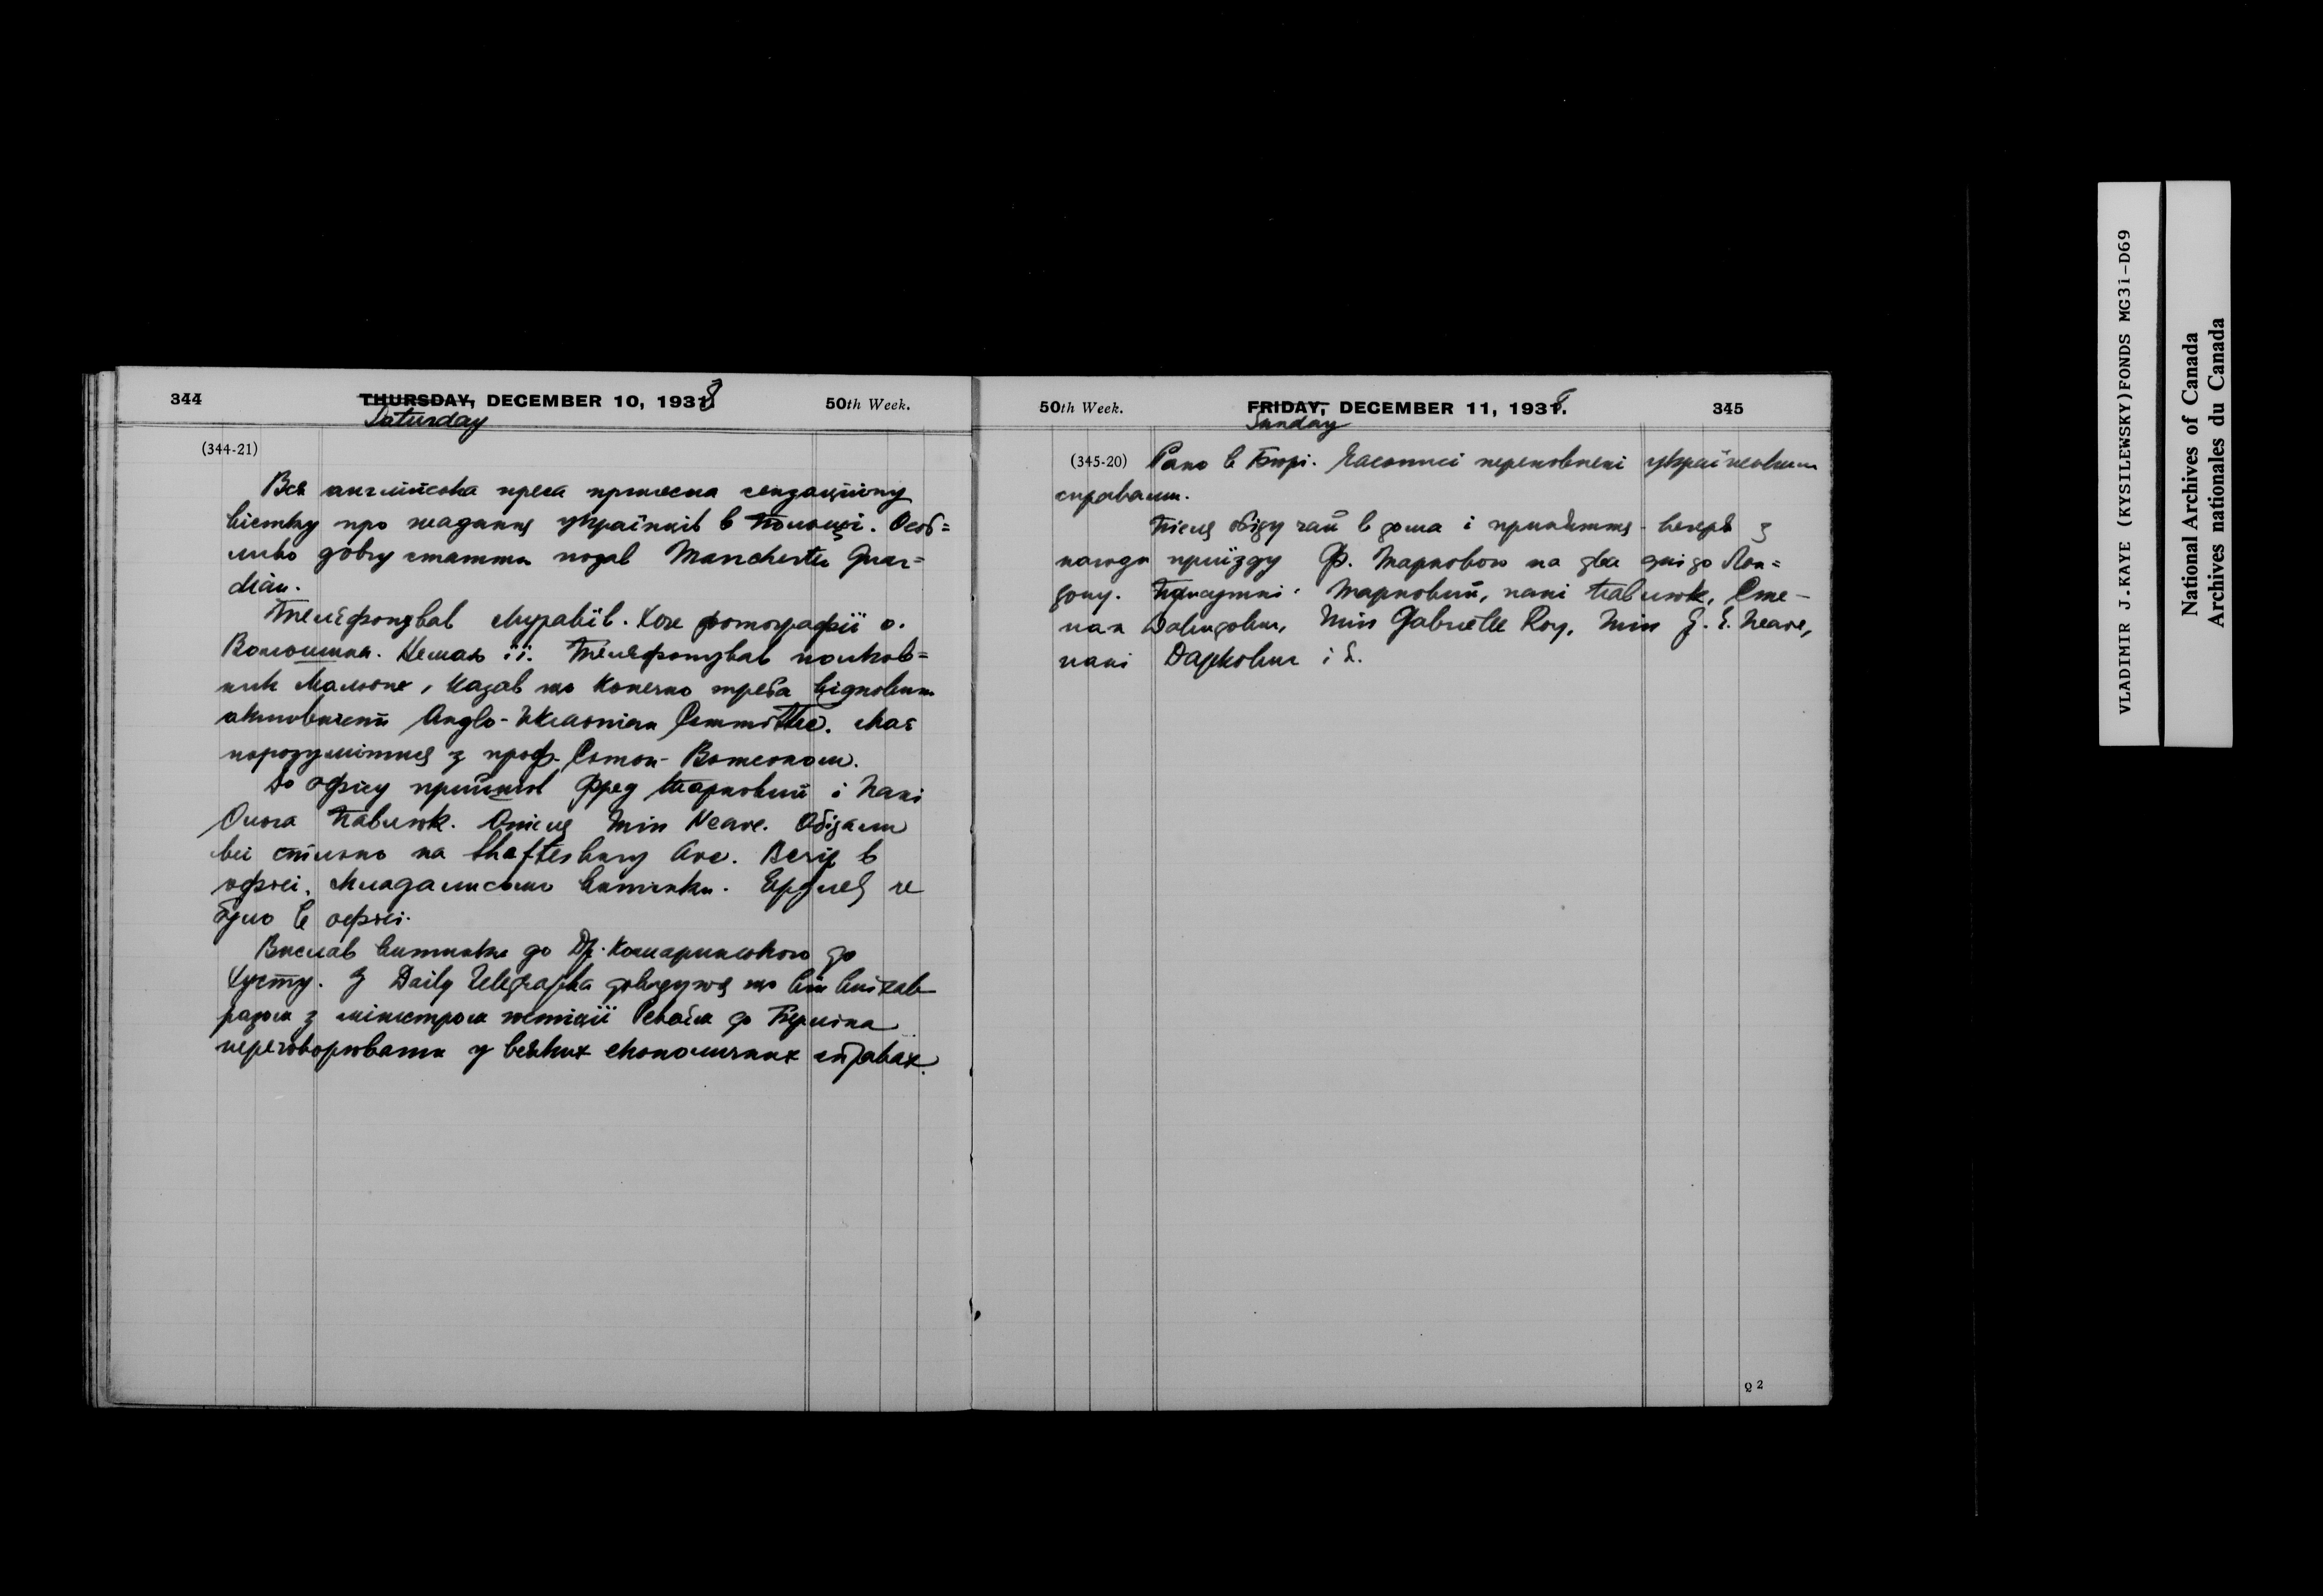 344 THURSDAY, DECEMBER 10, 1938 50th Week.
Saturday
(344-21)
Вся англійська преса принесла сензаційну
вістку про жадання українців в Польщі. Особ=
ливо добру статтю подав Manchester Guar=
dian.
Телєфонував Муравіїв. Хоче фотографії о.
Волошина. Немаю її. Телєфонував полков=
ник Мальоне, казав що конечно треба відновити
Anglo-Ukrainian Committee. Має
порозумітися з проф. Сетон-Вотсоном.
До офісу прийшов Фред Тарновий і пані
Ольга Павлюк. Опісля Miss Neave. Обідали
всі спільно на Shaftesbury Ave. Вечір в
офісі. витинки. не
було в офісі.
Вислав витинки до Др. Комаринського до
Хусту. З Daily Telegrapha довідуюся що він виїхав
разом з міністром юстиції до Берліна
переговорювати у всяких економічних справах.
50th Week. FRIDAY, DECEMBER 11, 1938. 345
Sunday
(345-20) Рано в Бюрі. Часописі переповнені українськими
справами.
Після обіду чай в дома і прийняття - вечеря з
нагоди приїзду Ф. Тарнового на два дні до Лон=
дону. Присутні: Тарновий, пані Павлюк, Сте-
пан Давидович, Miss Gabrielle Roy, Miss E. Neave,
пані Даркович і я.
Q 2
VLADIMIR J.KAYE (KYSILEWSKY)FONDS MG31-D69
National Archives of Canada
Archives nationales du Canada